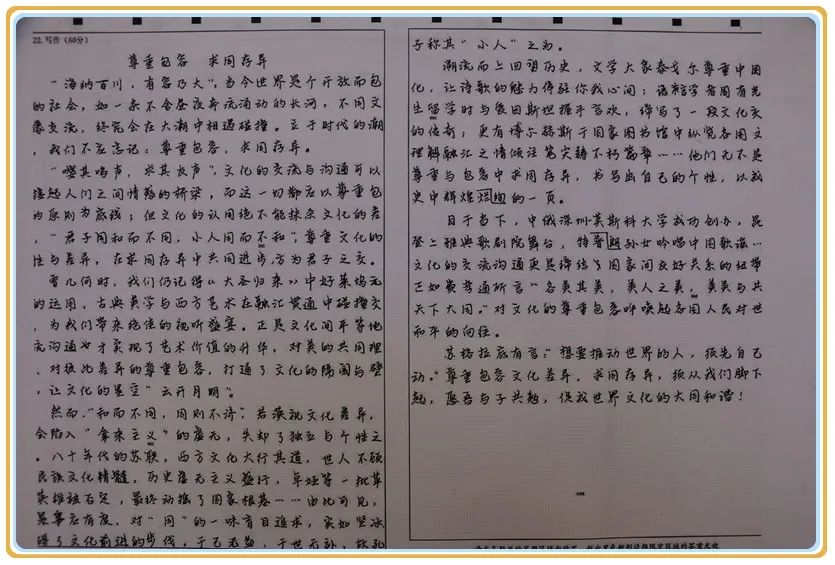 22.写作(60分)
尊重包容 求同存异
“海纳百川，有容乃大”，当今世界是个开放而包
的社会，如一条不舍昼夜奔流涌动的长河，不同文
像支流，终究会在大潮中相遇碰撞。立于时代的潮
，我们不应忘记：尊重包容，求同存异。
“嘤其鸣声，求其友声”，文化的交流与沟通可以
接起人们之间情感的桥梁，而这一切都应以尊重包
为原则为底线；但文化的认同绝不能抹杀文化的差
，“君子同和而不同，小人同而不和”，尊重文化的
性与差异，在求同存异中共同进步，方为君子之交。
曾几何时，我们仍记得《大圣归来》中好莱坞元
的运用，古典美学与西方艺术在融汇贯通中碰撞交
，为我们带来绝佳的视听盛宴。正是文化间平等地
流沟通，才实现了艺术价值的升华，对美的共同理
、对彼此差异的尊重包容，打通了文化的隔阂与壁
，让文化的星空“云开月明”。
然而，“和而不同，同则不济”，若漠视文化差异，
会陷入“拿来主义”的虚无，失却了独立与个性之
。八十年代的苏联，西方文化大行其道，世人不顾
民族文化精髓，历史虚无主义盛行，卓娅等一批草
英雄被否定，最终动摇了国家根基……由此可见，
异事应有度，对“同”的一味盲目追求，实如坚冰
碍了文化前进的步伐，于己无益，于世无补，故孔
子称其“小人”之为。
潮流而上回望历史，文学大家泰戈尔尊重中国
化，让诗歌的魅力传驻你我心间；语言学者周有光
生留学时与爱因斯坦握手言欢，缔写了一段文化交
的传奇；更有博尔赫斯于国家图书馆中纵览各国文
理解融汇之情倾注笔尖铸不朽篇章……他们无不是
尊重与包容中求同存异，书写出自己的个性，以成
史中辉煌绚烂的一页。
目于当下，中俄深圳莫斯科大学成功创办，昆
登上雅典歌剧院舞台，特普朗孙女吟唱中国歌谣…
文化的交流沟通更是缔结了国家间友好关系的纽带
正如费孝通所言“各美其美，美人之美，美美与共
天下大同。”对文化的尊重包容呼唤起各国人民对世
和平的向往。
苏格拉底有言：“想要推动世界的人，须先自己
动。”尊重包容文化差异，求同存异，须从我们脚下
起，愿吾与子共勉，促成世界文化的大同和谐！